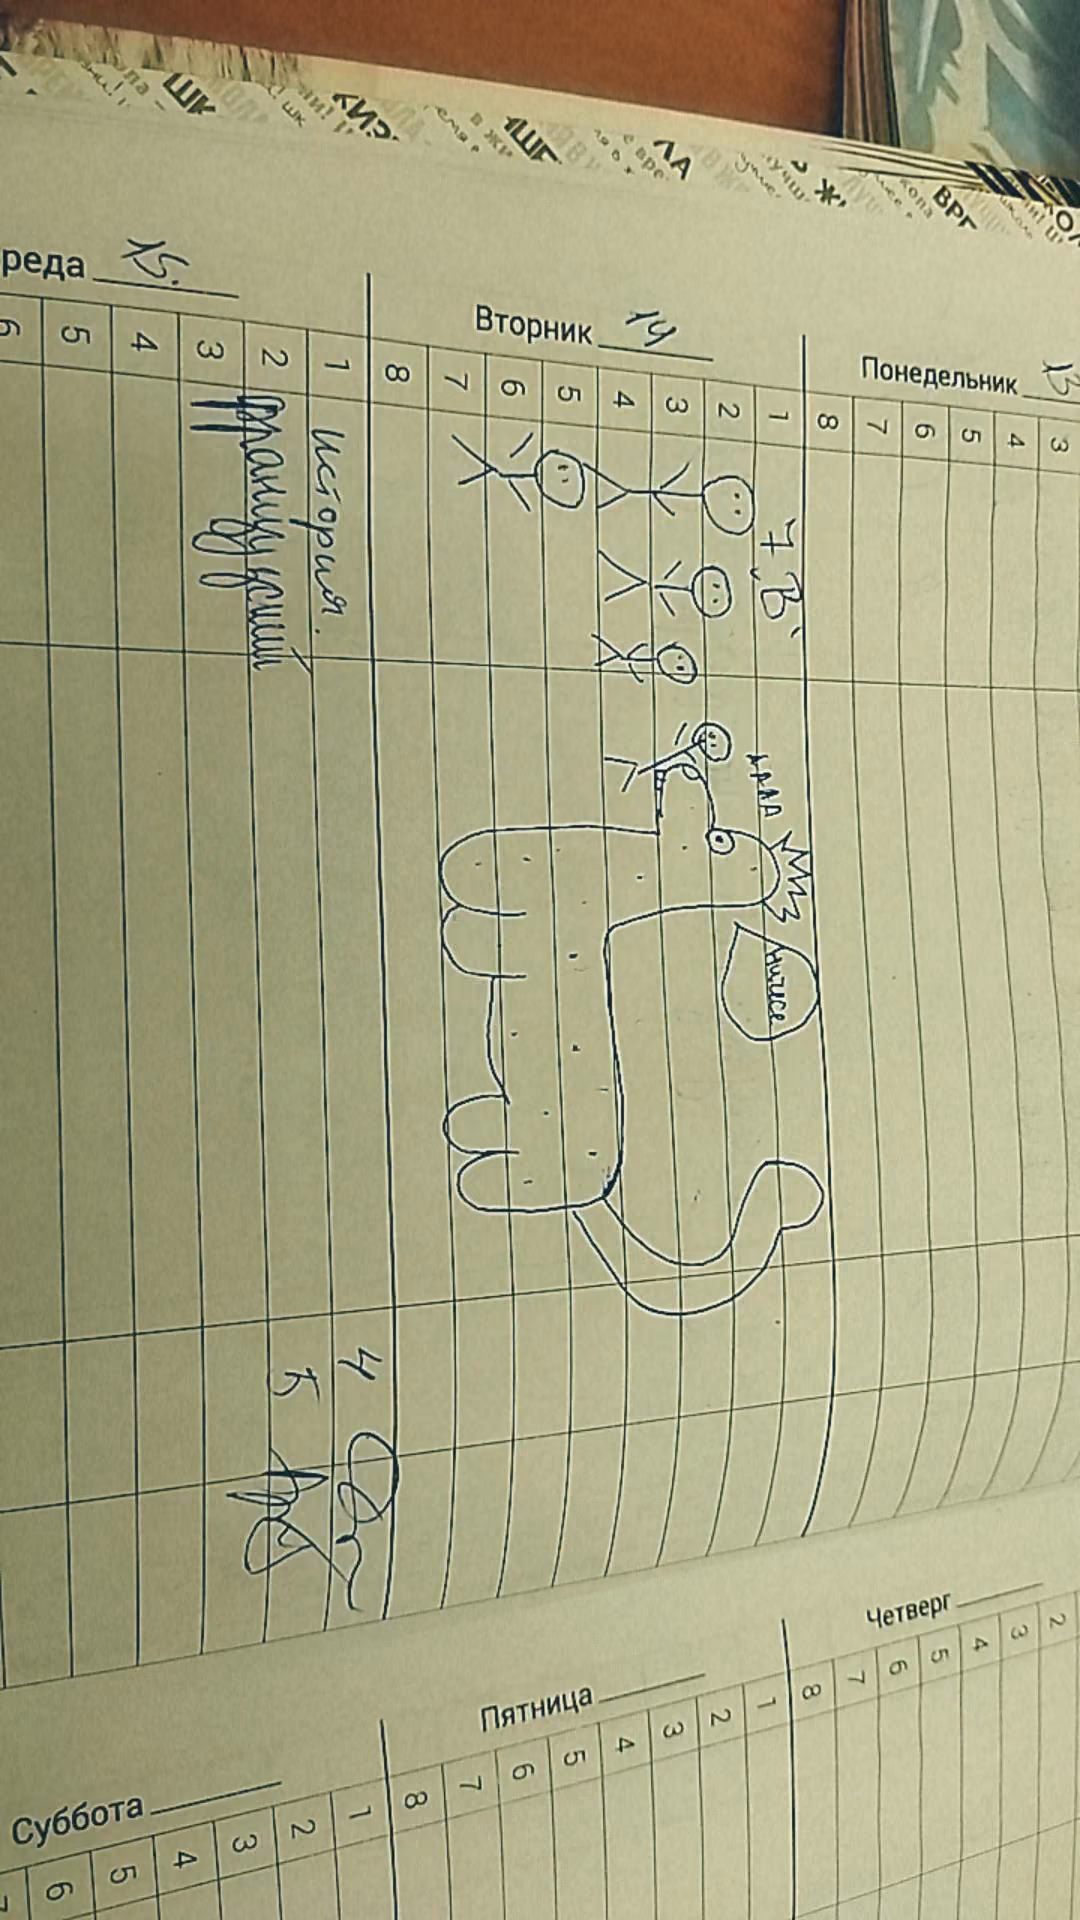 Понедельник 13
3
4
5
6
7
8
Вторник 14
1
2
3
4
5
6
7
8
7 "В"
АААА
ничесе
Среда 15.
1 История. 4
2 Французский 5
3
4
5
6
Четверг
2
3
4
5
6
7
8
Пятница
1
2
3
4
5
6
7
8
Суббота
1
2
3
4
5
6
7